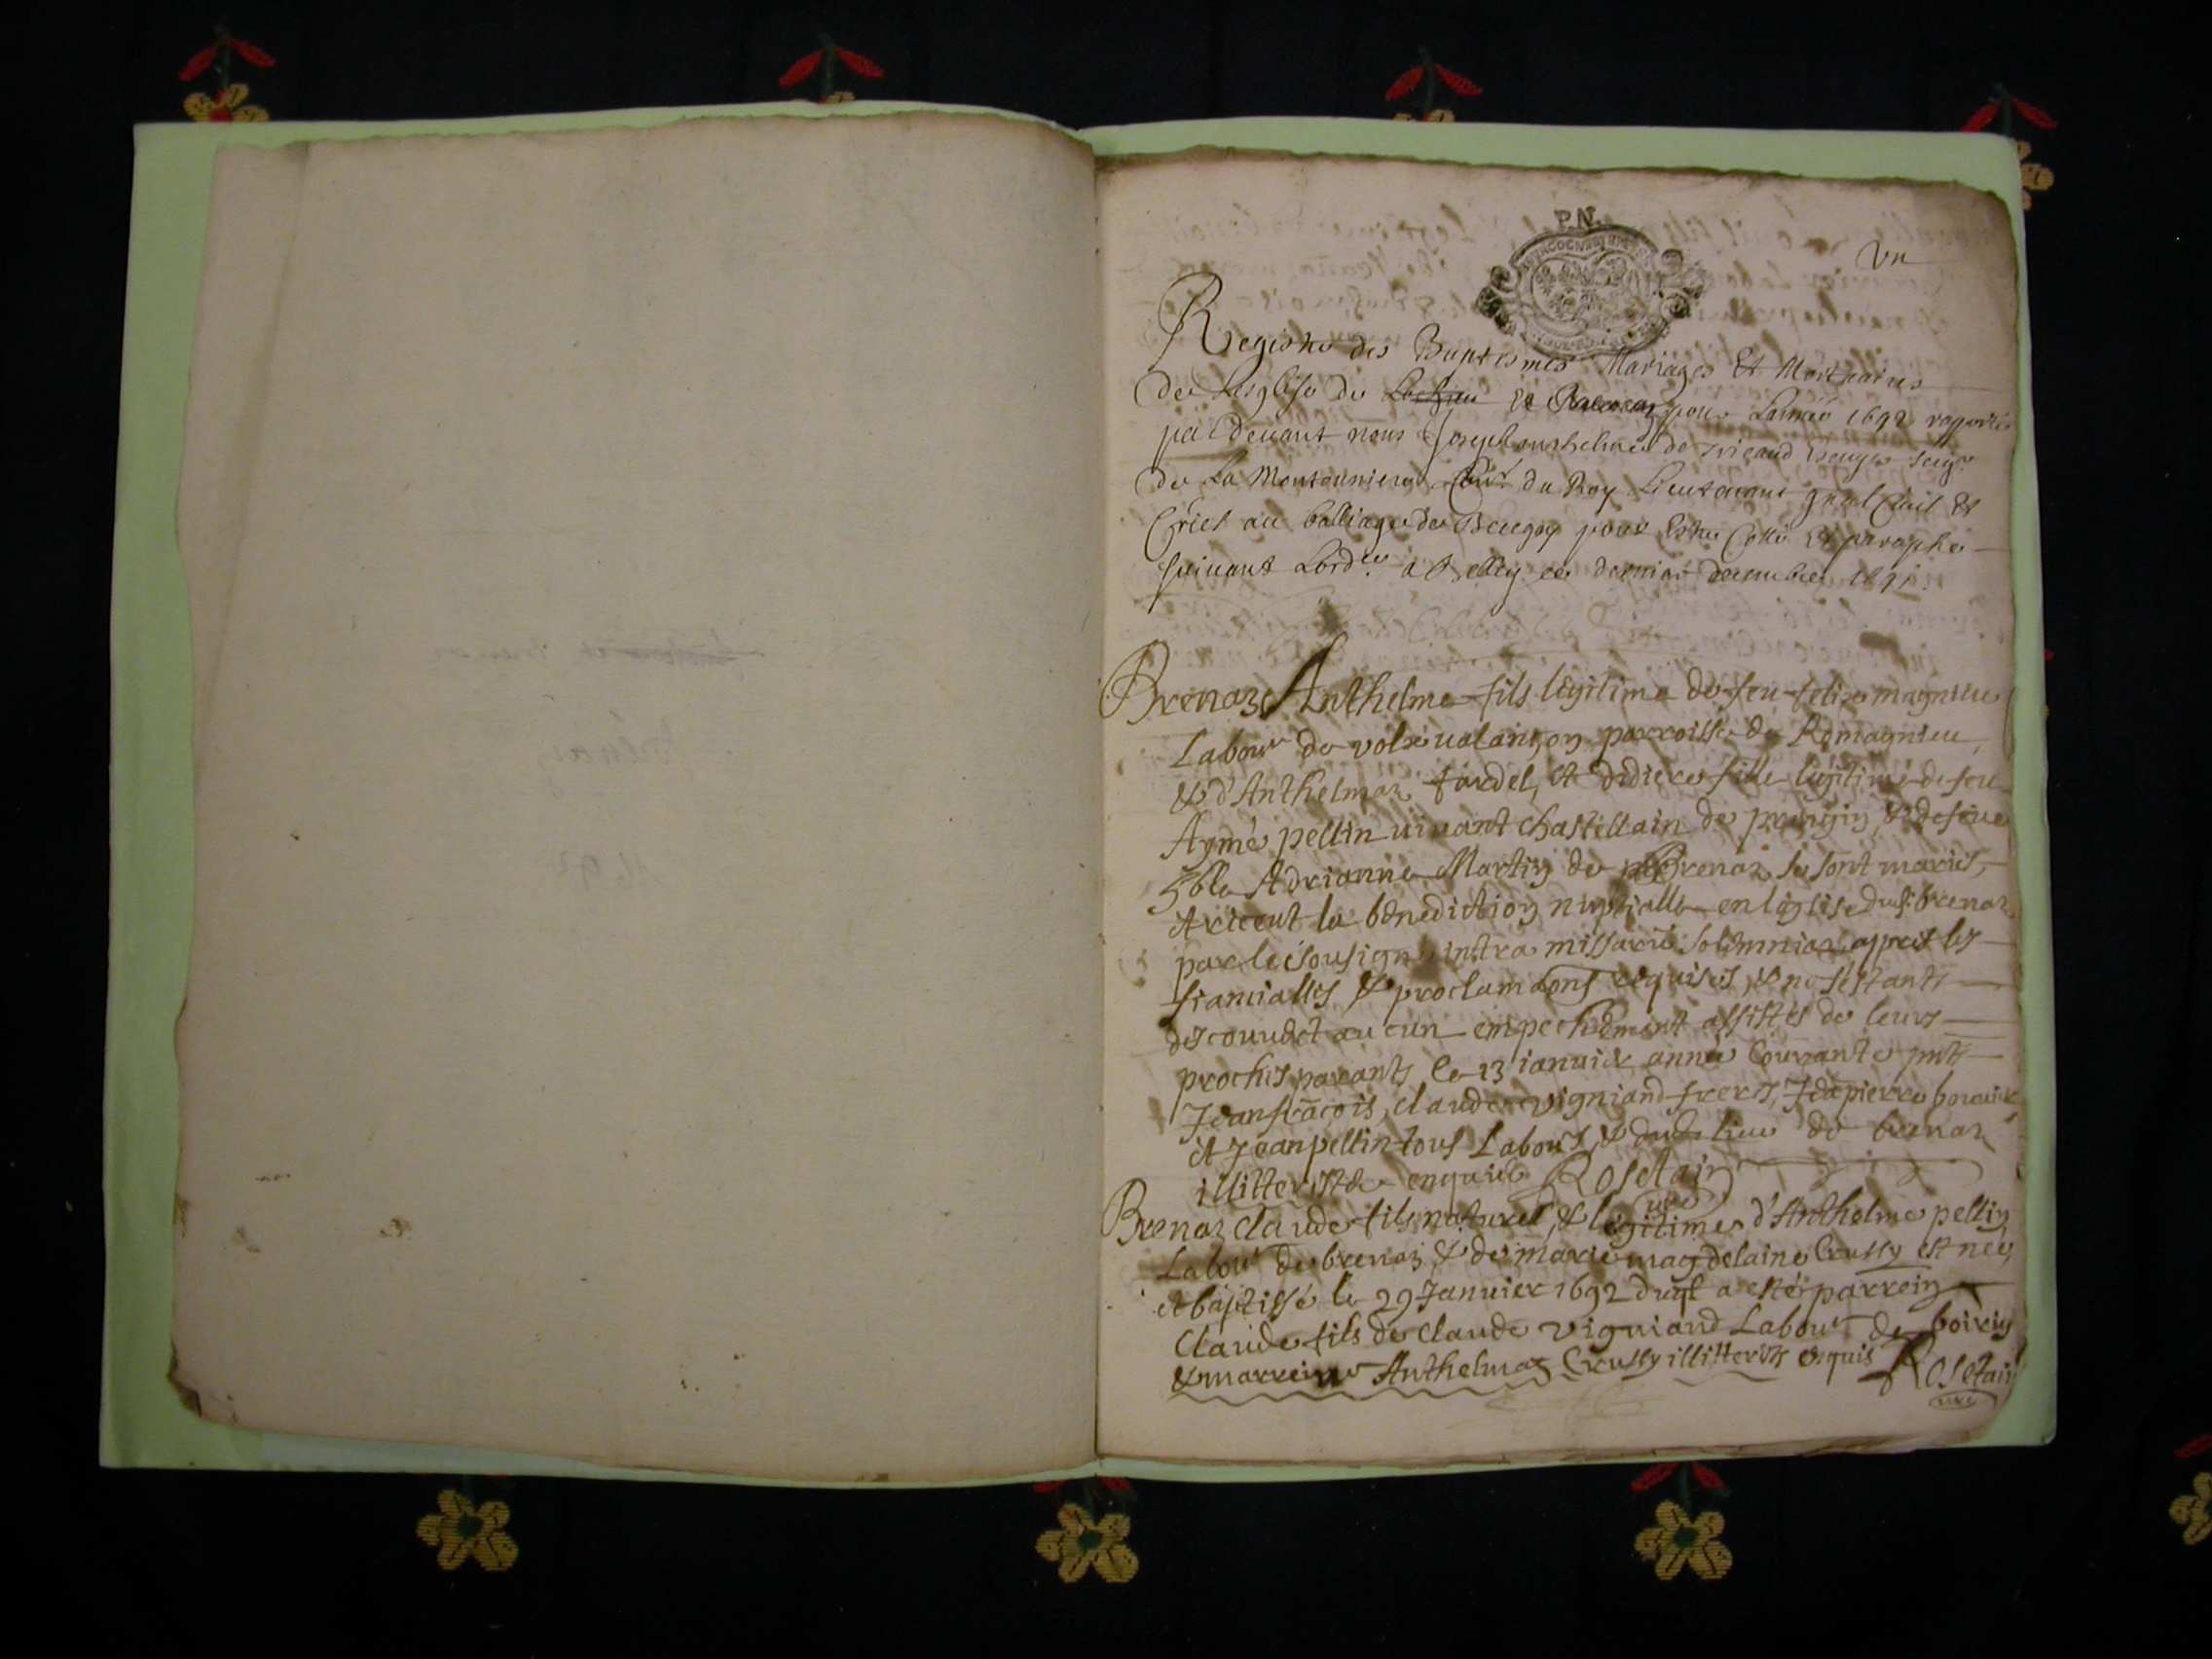 P.N.
Vn
Registre des Baptesmes Mariages Et Mortuaires
De Lesglise de Lochieu et Brenaz pour Lannée 1692 rapporté
par devant nous Joseph anthelme de Tricaud Seigr
De La Moutonniere du Roy Lieutenant gnal Ciuil Et
Criel au balliage de Beugey pour Estre Cotté Et paraphé
suiuant Lordce a Belley ce dernier decembre 1691
Brenaz Anthelme fils légitime de feu felix magnieu
Labour de parroisse de Romagnieu
& d'Anthelmaz fardel, et didiere fille légitime de feu
Aymé pellin uiuant chastellain de & de feue
hble Adrianne Martin de Brenaz se sont mariés,
et receut la bénediction nuptialle en liglise dudt brenaz
par le sousigné intra missarũ solemniaz appres les
fiancialles & proclamaõns requises, & ne s'estant
descouuert aucun empechement assistés de leurs
proches parants le 13 ianuier année Courrante pnts
Jean frãcois, claude vigniand freres, pierre
et Jean pellin tous Labours, & dudt lieu de brenaz
illitterés de enquis Rosetain
curé
Brenaz claude fils naturel, & légitime d'Anthelme pellin
Labour de brenaz & de marie magdelaine Crussy est nee,
et baptissé le 29 Januier 1692 duqł a esté parrein
Claude fils de claude vigniand Labour de
& marreine Anthelmaz Crussy illitterés enquis Rosetain
curé
1692